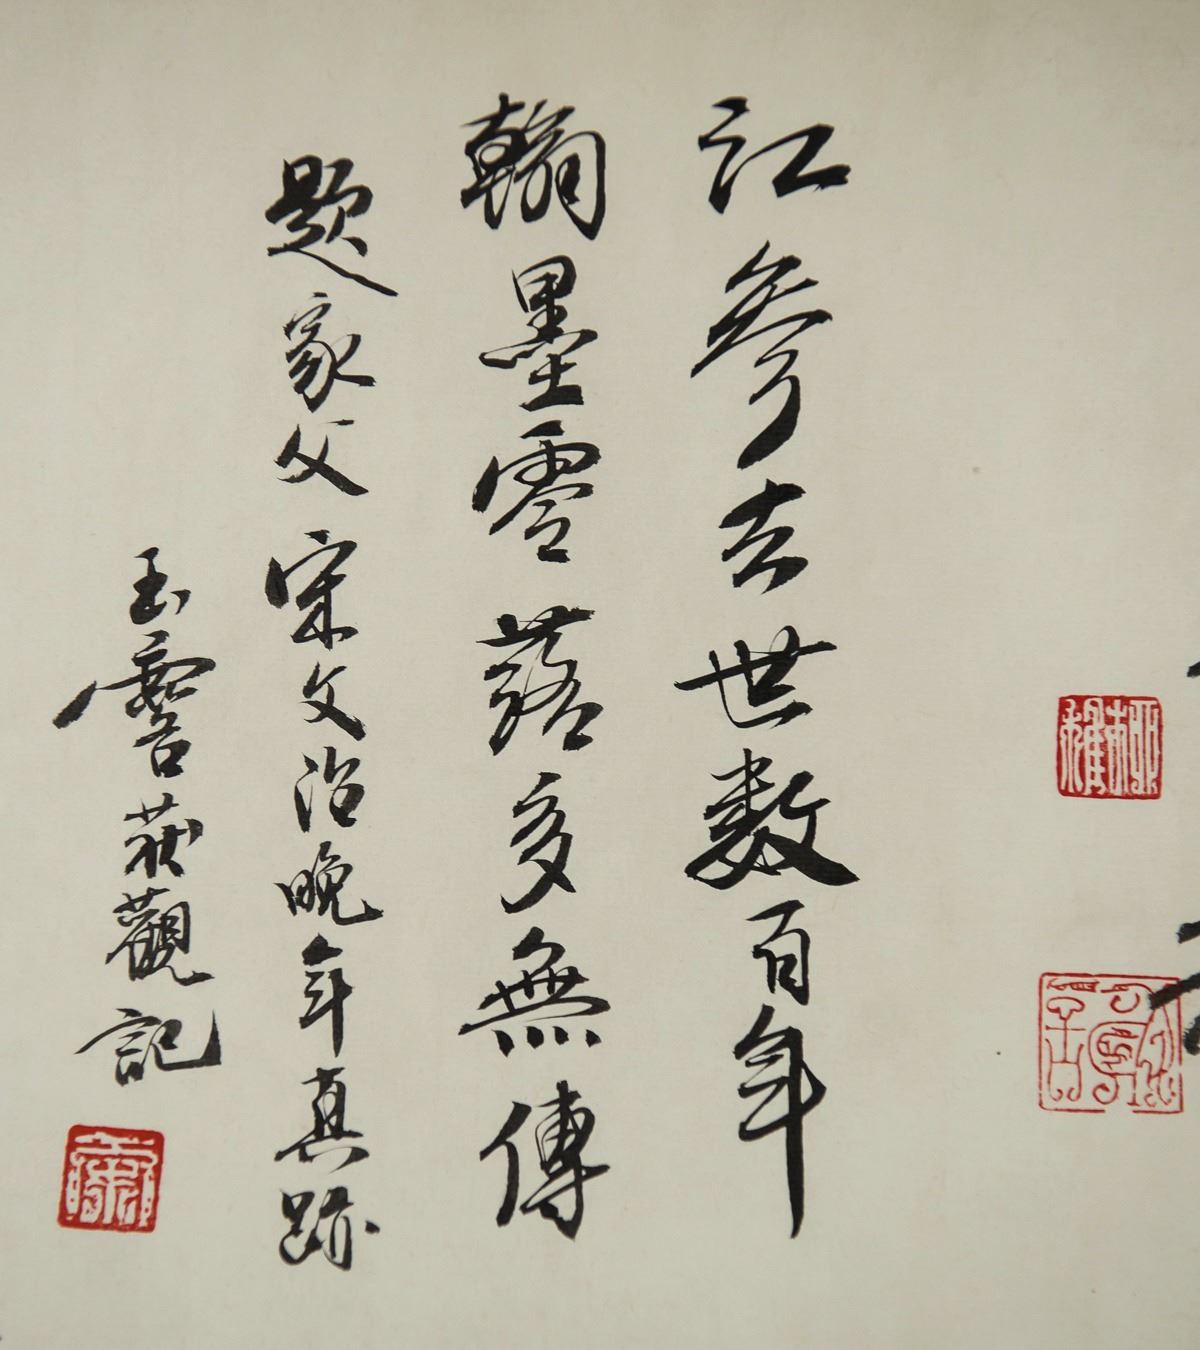 江參去世數百年
翰墨零落多無傳
題家父宋文治晚年真跡
玉麐获觀記